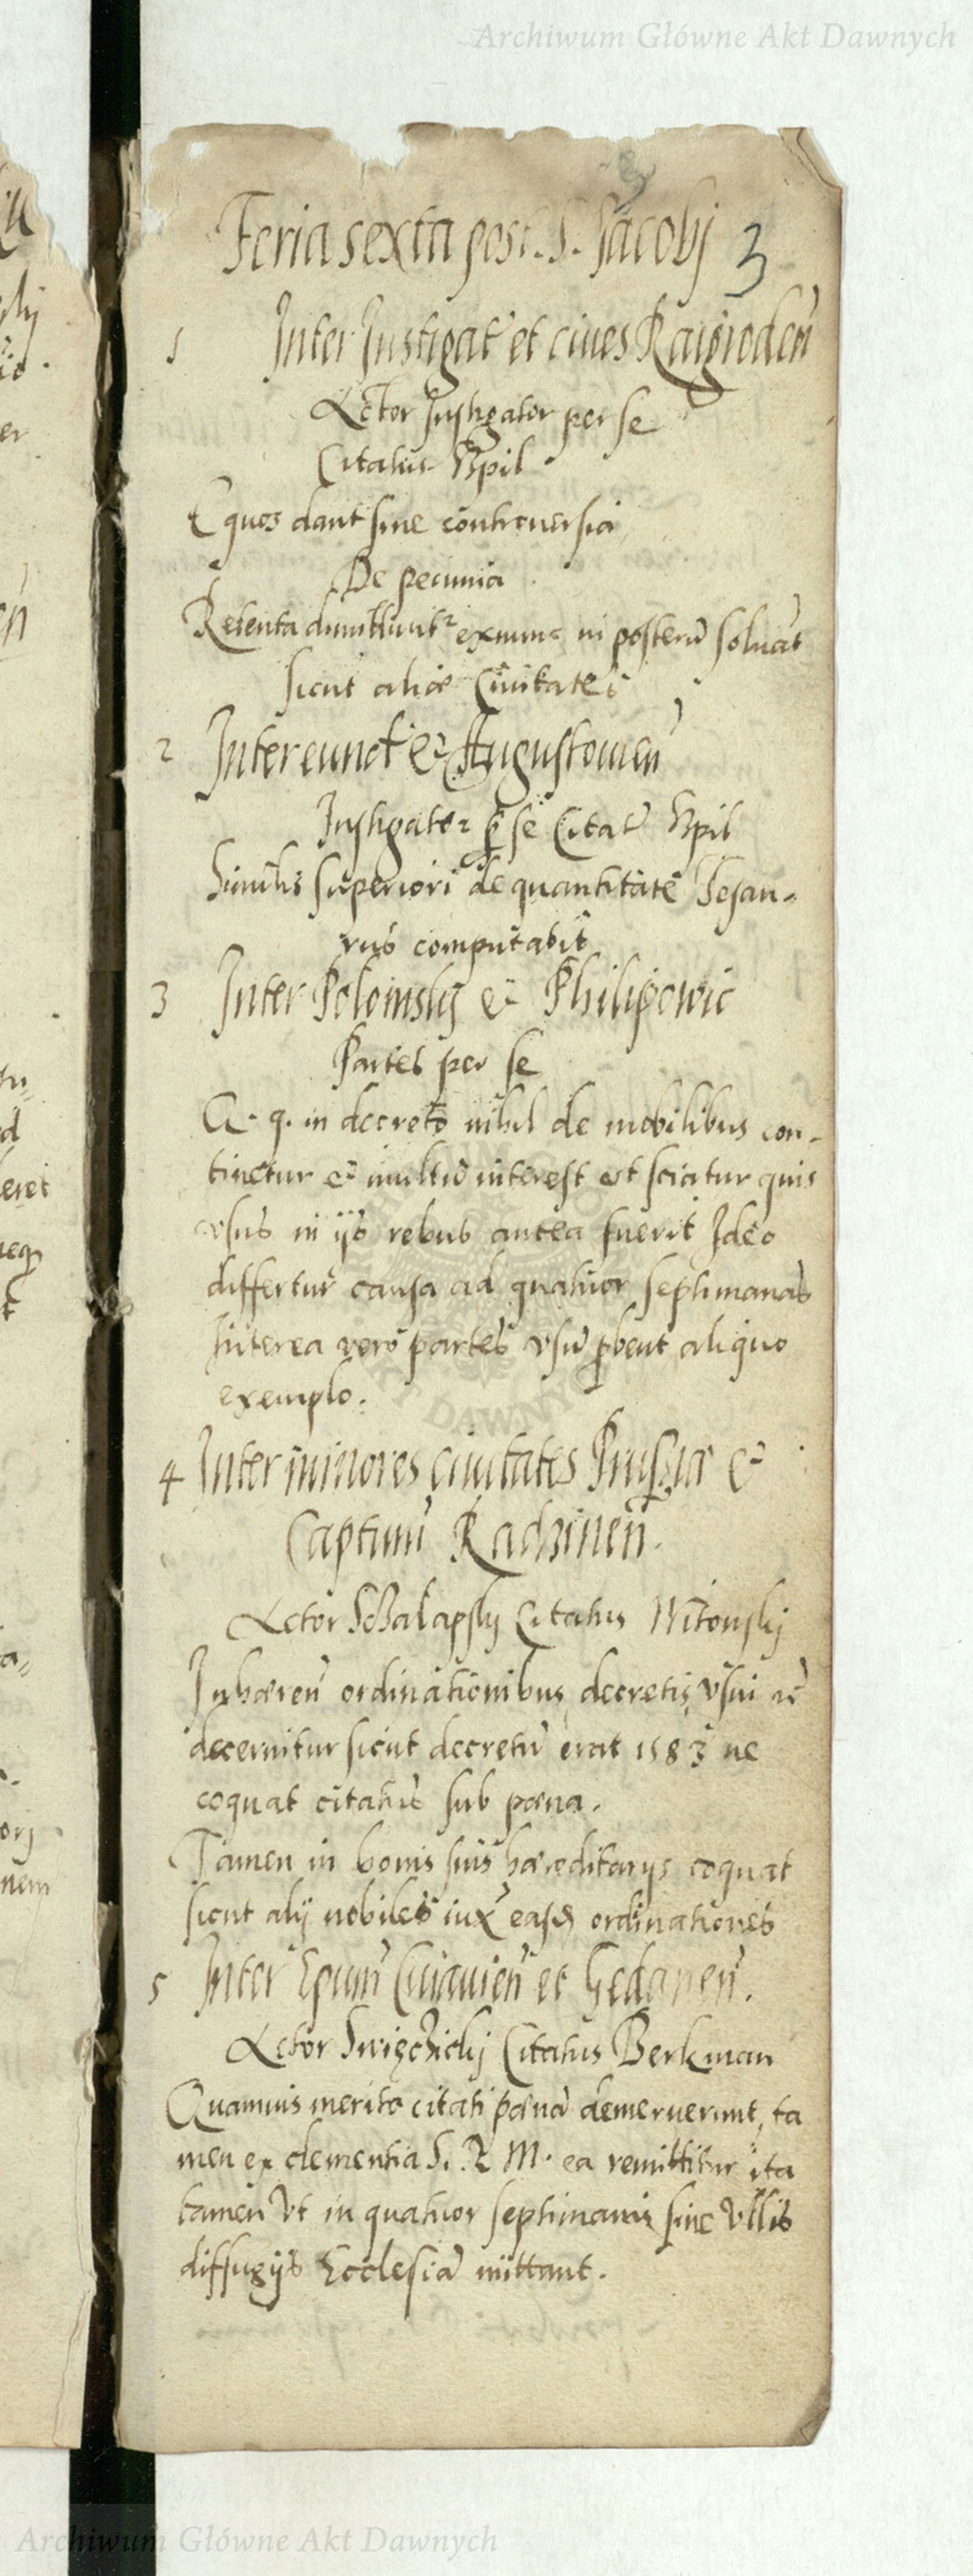 Archiwum Główne Akt Dawnych
3
Feria sexta post. S. Jacobj 3
1 Inter Instigat et ciues Raigroden
Actor Instigator per se
Citatus Kpil
Equos dant sine controuersia
De pecunia
Retenta dimittunt exnunc in posterū soluāt
sicut aliæ Ciuitates
2 Inter eund et Augustouien
Instigator p se Citat Kpil
Similis superiori de quantitate Tesau-
rus computabit
3 Inter Poloinsky et Philipowic
Partes per se
A. q. in decreto nihil de mobilibus con-
tinetur et multū interest vt sciatur quis
vsus in ijs rebus antea fuerit Ideo
differtur causa ad quatuor septimanas
Interea vero partes vsū pbent aliquo
exemplo.
4 Inter minores ciuitates Prussiæ et
Captum Radzinen.
Actor Schalapsky Citatus Witonskj
Inhæren ordinationibus, decretis, vsui
decernitur sicut decretū erat 1583 ne
coquat citatus sub pæna.
Tamen in bonis suis hæreditarys coquat
sicut alij nobiles iux easd ordinationes
5 Inter Epum Cuiauien et Gedanen.
Actor Swięczickj Citatus Berkman
Quamuis merito citati pænā demeruerunt, ta
men ex clementia S. R M. ea remittitur ita
tamen Vt in quatuor septimanis sine Vllis
diffugijs Ecclesiā mittant.
Archiwum Główne Akt Dawnych